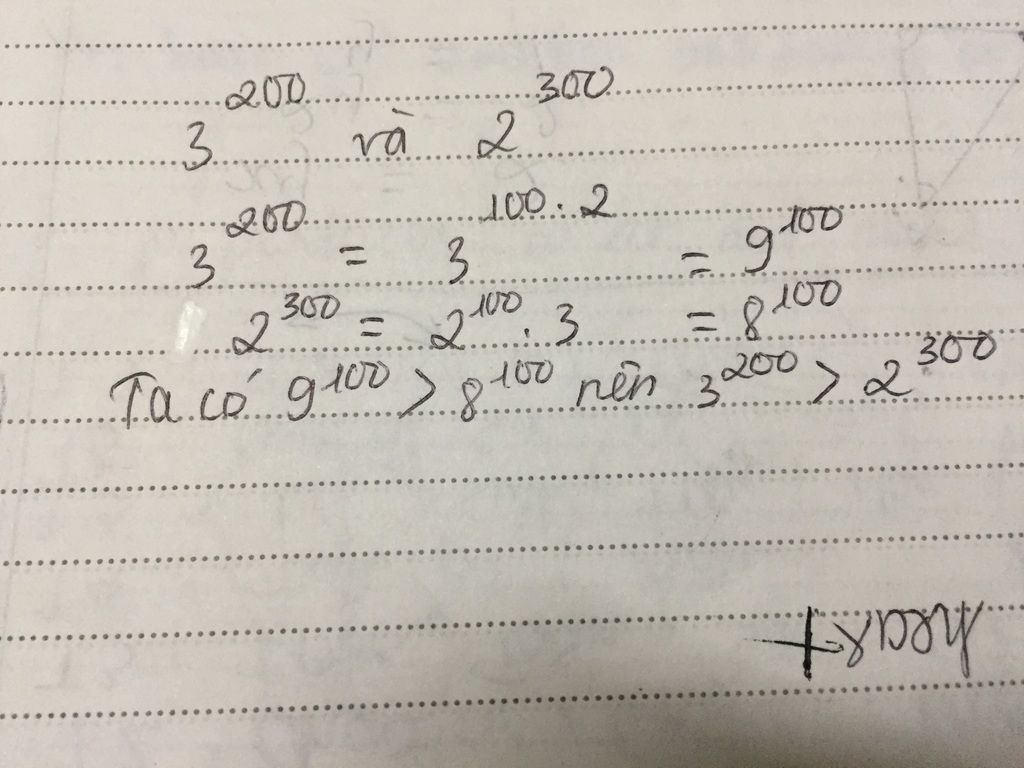 3^200 và 2^300
3^200 = 3^100.2 = 9^100
2^300 = 2^100.3 = 8^100
Ta có 9^100 > 8^100 nên 3^200 > 2^300